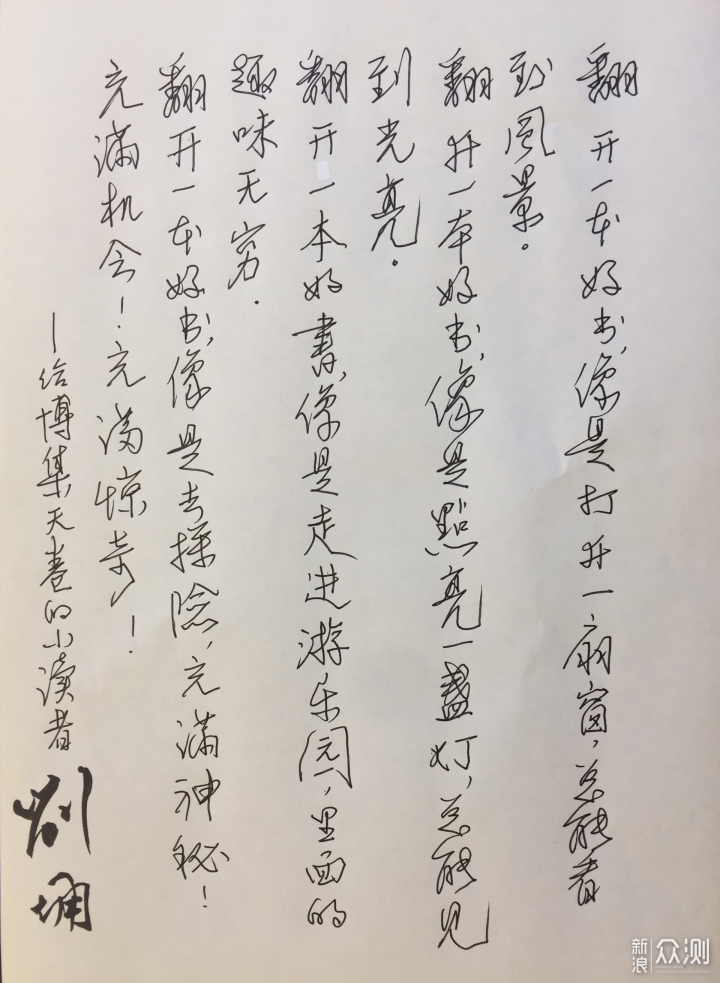 翻开一本好书，像是打开一扇窗，总能看
到风景。
翻开一本好书，像是點亮一盏灯，总能见
到光亮。
翻开一本好書，像是走进游乐园，里面的
趣味无穷。
翻开一本好书，像是去探险，充满神秘！
充满机会！充满惊奇！
—给博集天卷的小读者
刘墉
新浪 众测